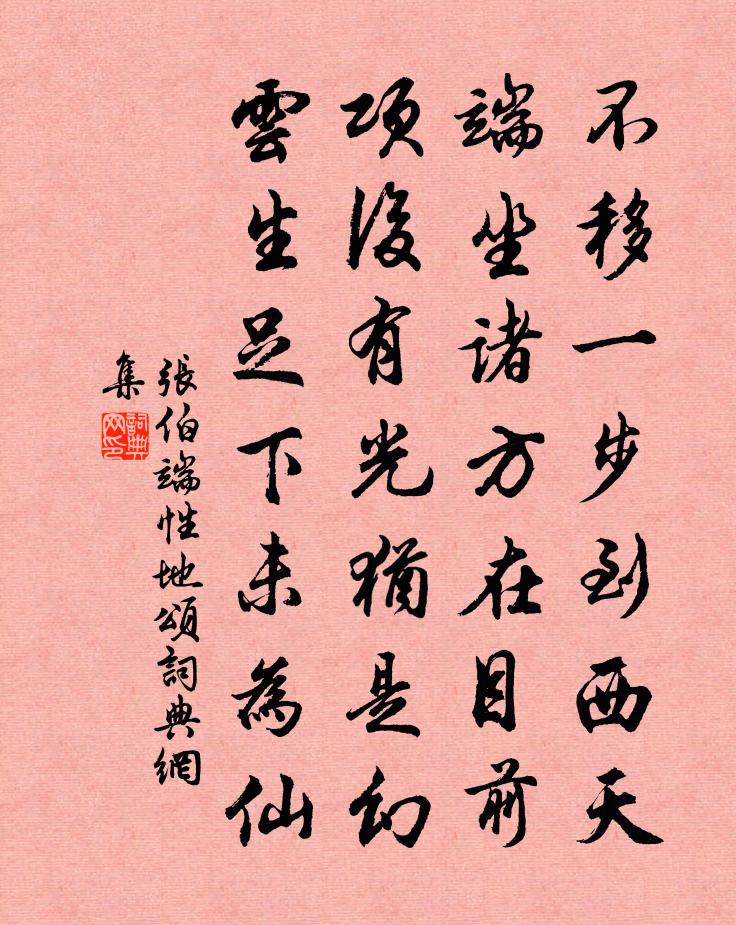 不移一步到西天
端坐諸方在目前
項後有光猶是幻
雲生足下未為仙
張伯端性地頌詞典網
集
詞典
网印